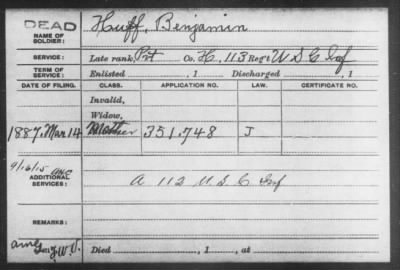 DEAD
NAME OF SOLDIER: Huff, Benjamin
SERVICE: Late rank, Pvt Co. H, 113 Reg't U S C Inf
TERM OF SERVICE: Enlisted , 1 Discharged , 1
DATE OF FILING. CLASS. APPLICATION NO. LAW. CERTIFICATE NO.
Invalid,
Widow,
1887. Mar 14 Mother 351,748 J
9/16/15
ADDITIONAL SERVICES: A 112 U. S. C Inf
REMARKS:
Died , 1 , at